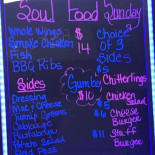 Soul Food Sunday
Whole Wings
Smoke Chicken
Fish
BBQ Ribs
$14
Choice
of 3
Sides
Sides
Dressing
Mac & Cheese
Turnip Greens
Cabbage
Potato Salad
Gumbo
$10
Chitterlings
Chicken
Salad
$5
$6
Cheese
Burger
$11
Staff
Burger